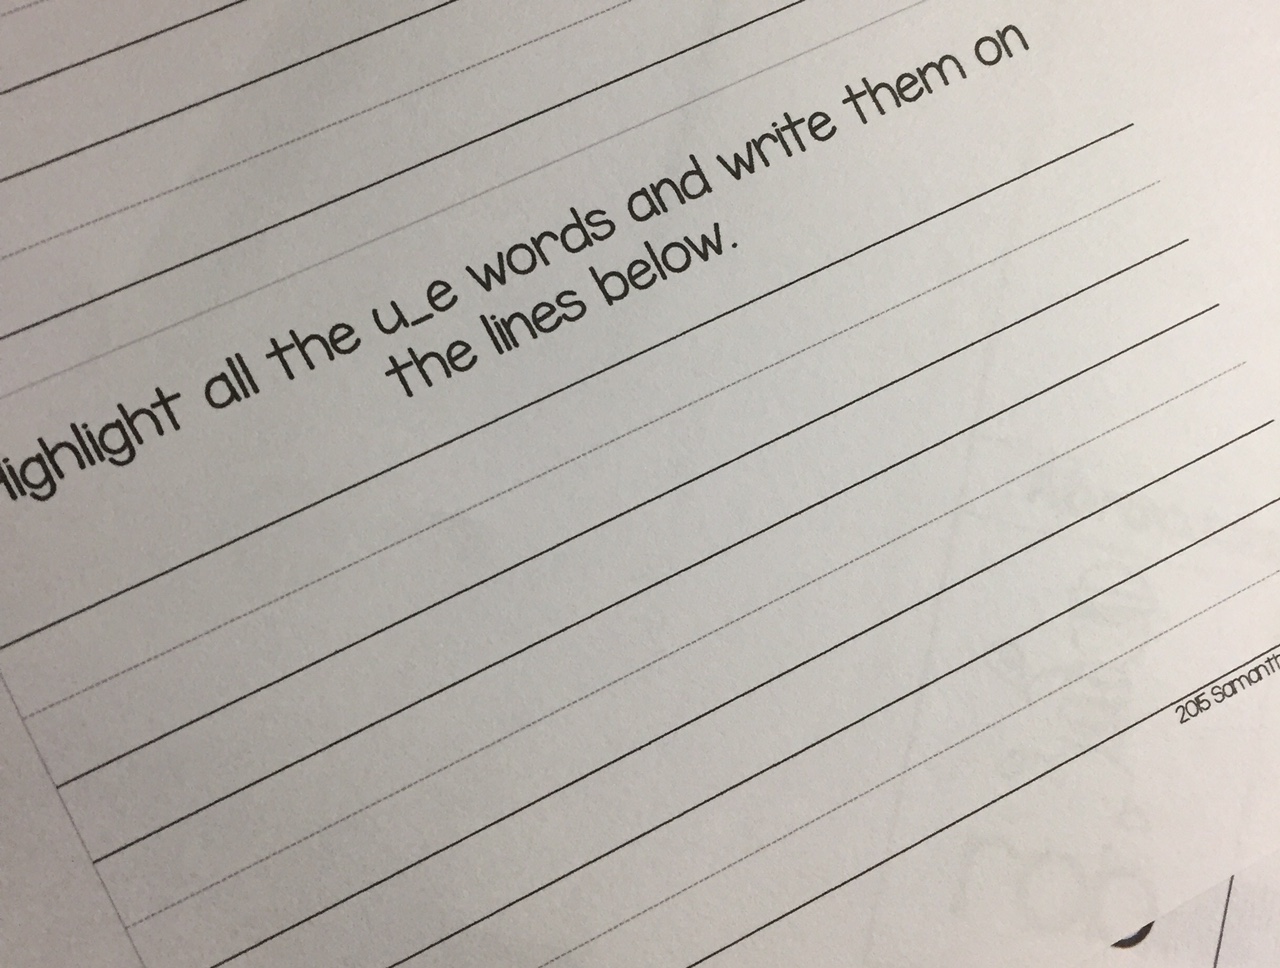 Highlight all the u_e words and write them on
the lines below.
2015